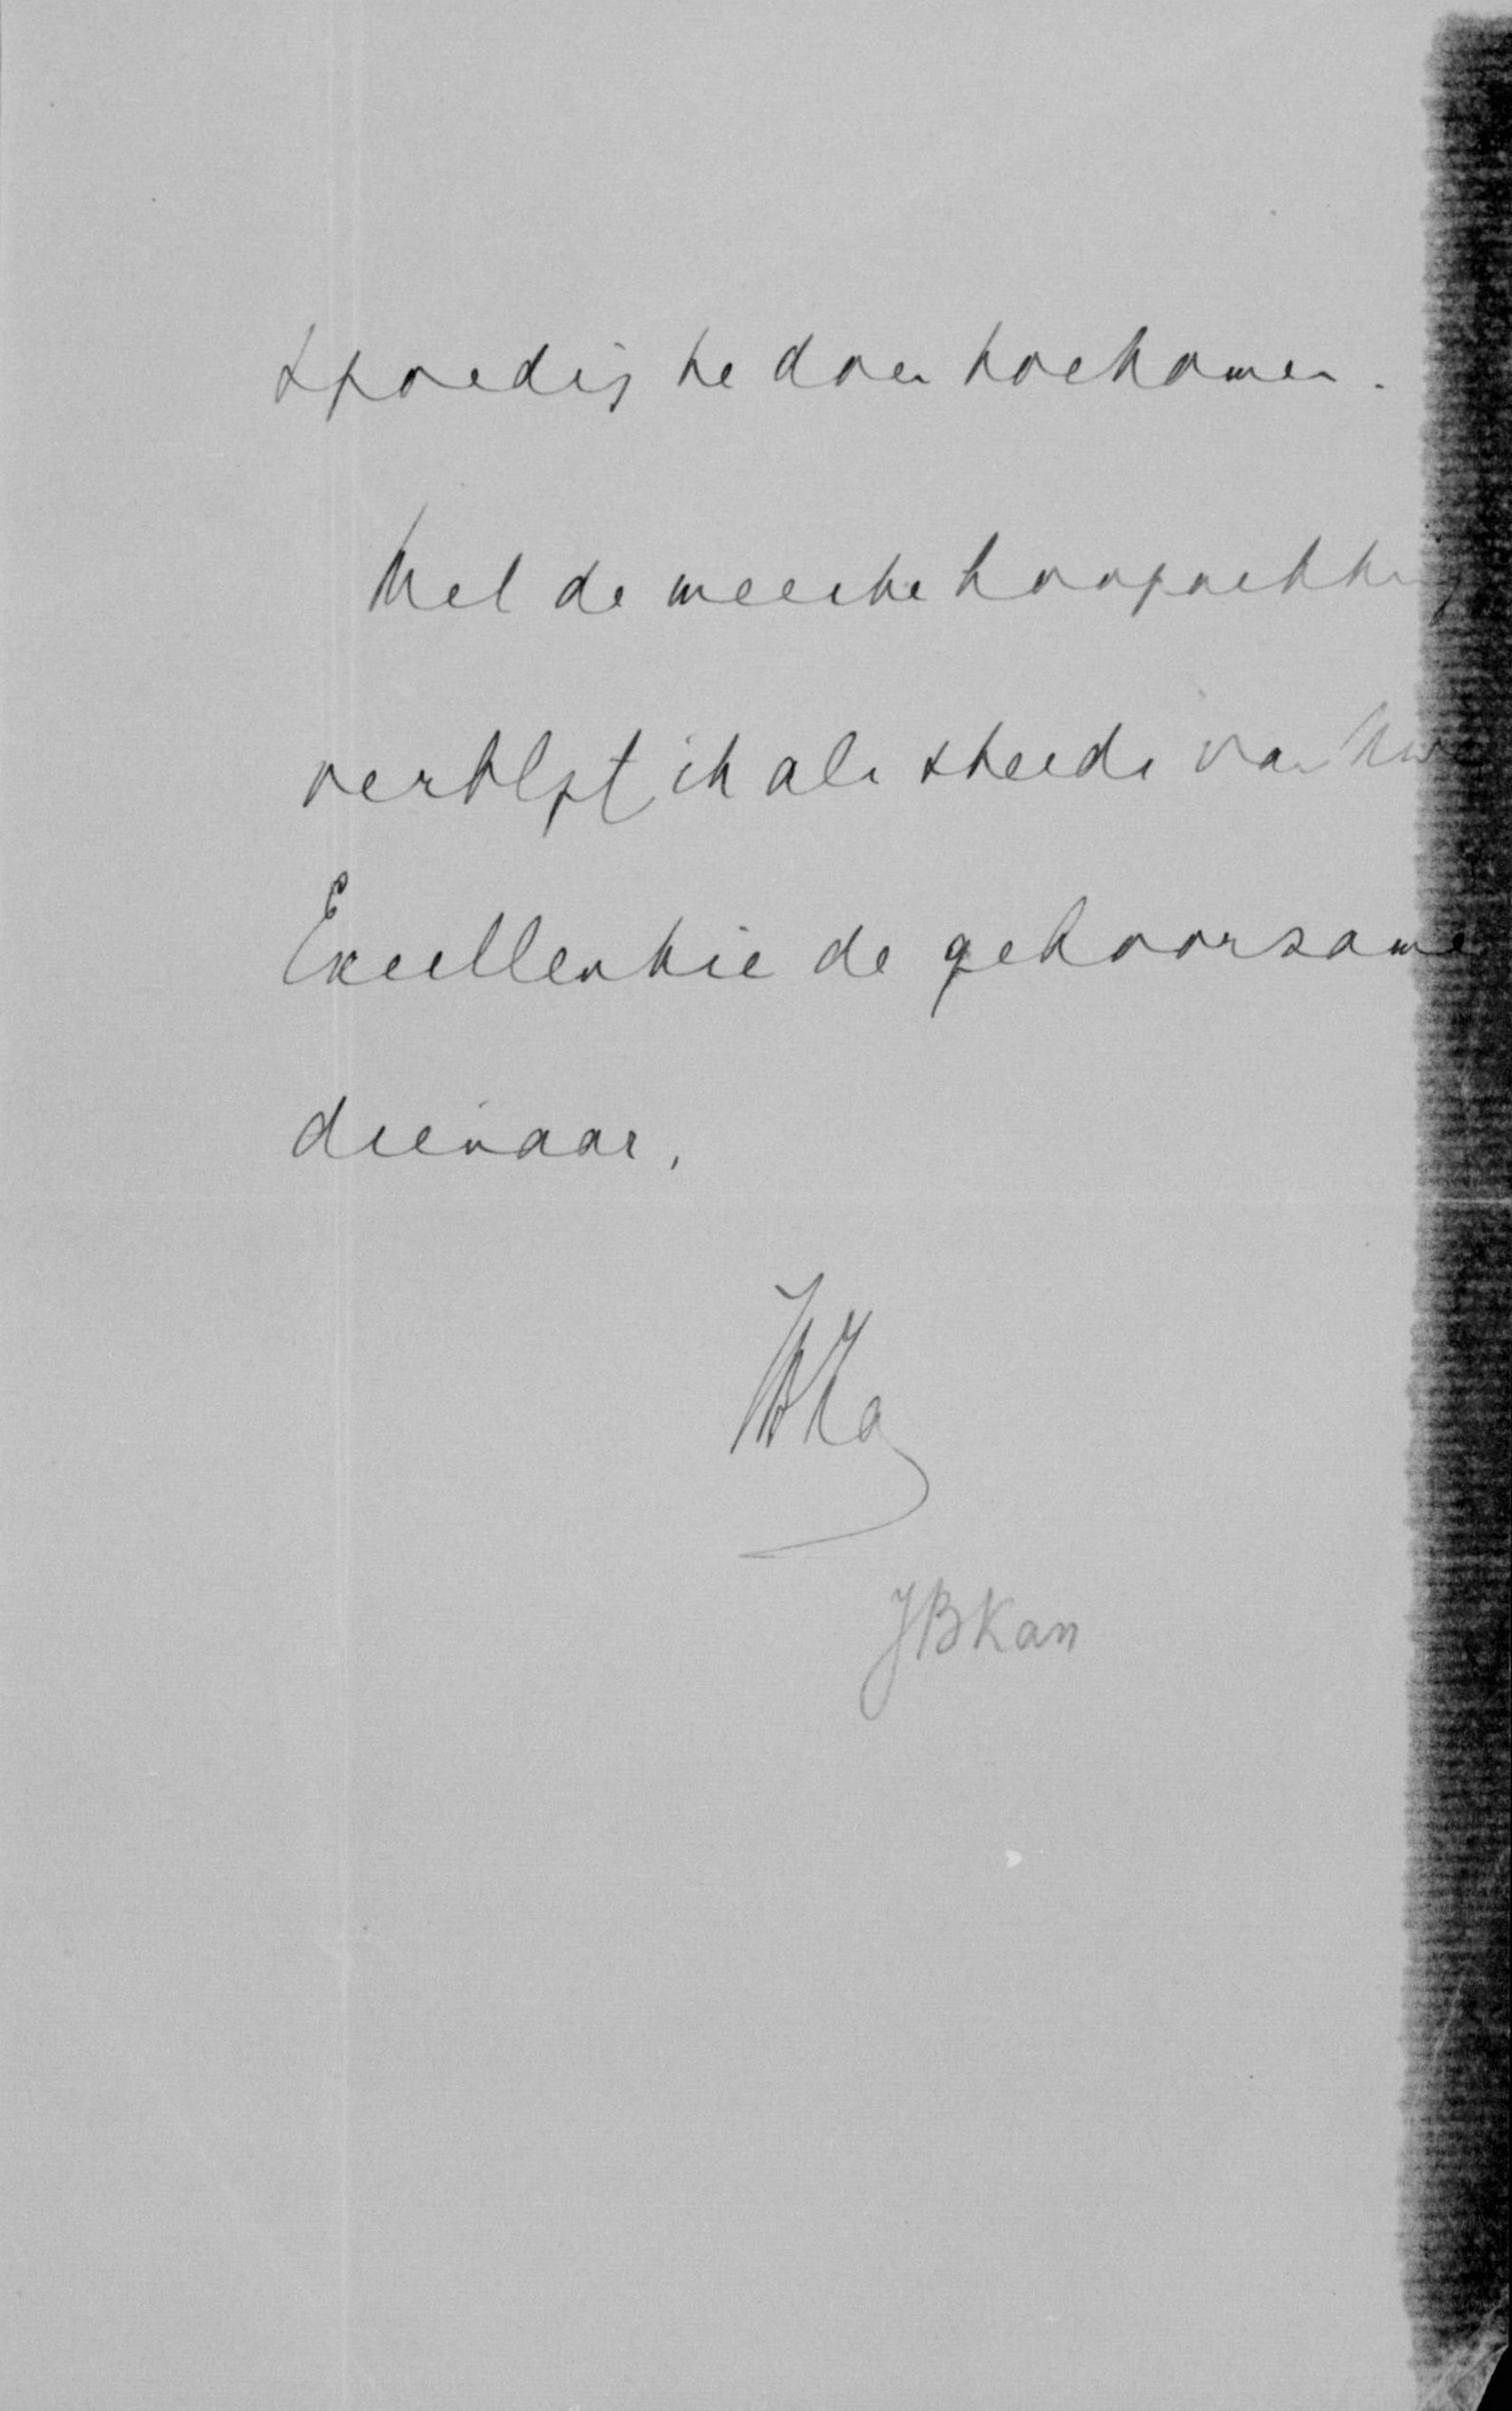 spoedig te doen toekomen.
Met de meeste hoogachting
verblijft ik als steeds van Uwe
Excellentie de gehoorzame
dienaar,
JBKan
JBKan